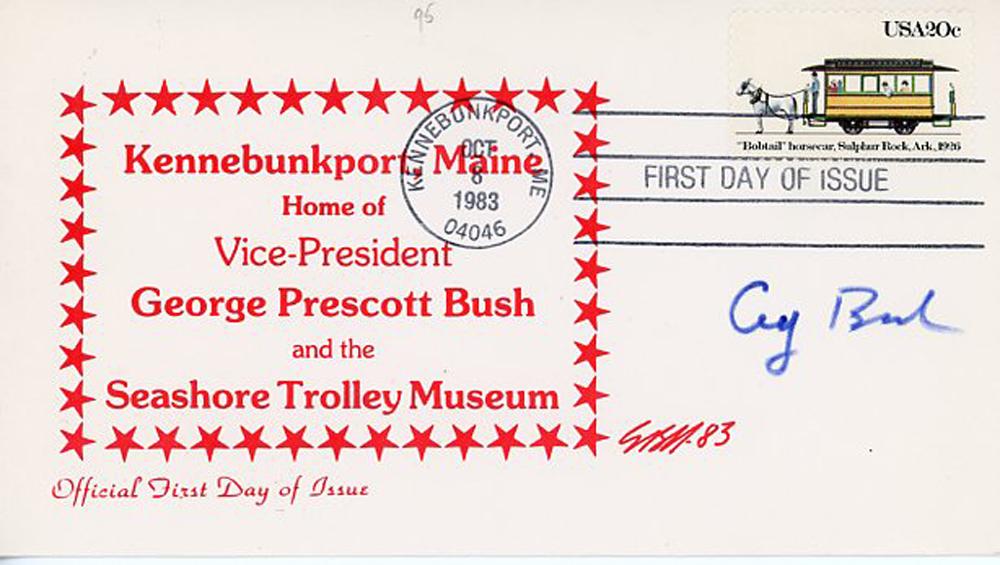 95
USA20c
"Bobtail" horsecar, Sulphur Rock, Ark., 1926
KENNEBUNKPORT ME
OCT
8
1983
04046
FIRST DAY OF ISSUE
Kennebunkport Maine
Home of
Vice-President
George Prescott Bush
and the
Seashore Trolley Museum
Bush
83
Official First Day of Issue